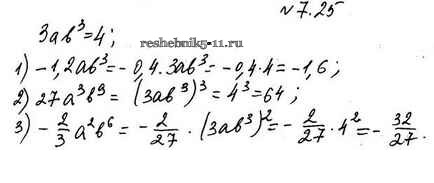 №7.25
3ab³=4;
reshebnik5-11.ru
1) -1,2ab³=-0,4·3ab³=-0,4·4=-1,6;
2) 27a³b⁹ = (3ab³)³ = 4³=64;
3) -2/3 a²b⁶ = -2/27 · (3ab³)² = -2/27 · 4² = -32/27.